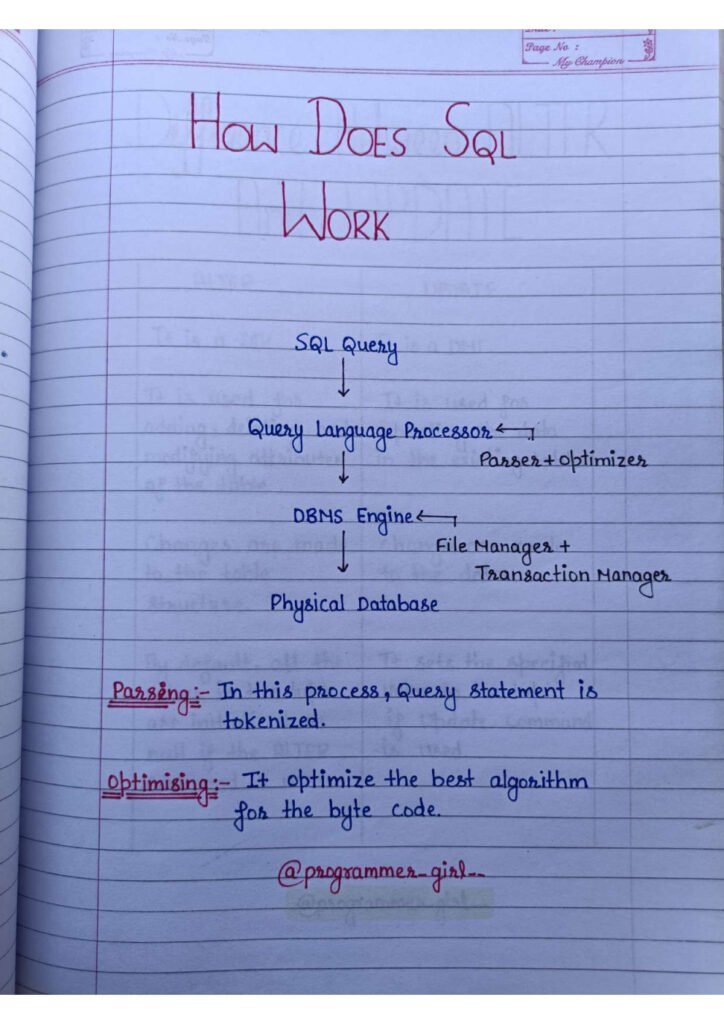 Page No :
My Champion
HOW DOES SQL
WORK
SQL Query
Query Language Processor
Parser + optimizer
DBMS Engine
File Manager +
Transaction Manager
Physical Database
Parsing :- In this process, Query statement is
tokenized.
Optimising :- It optimize the best algorithm
for the byte code.
@programmer_girl--